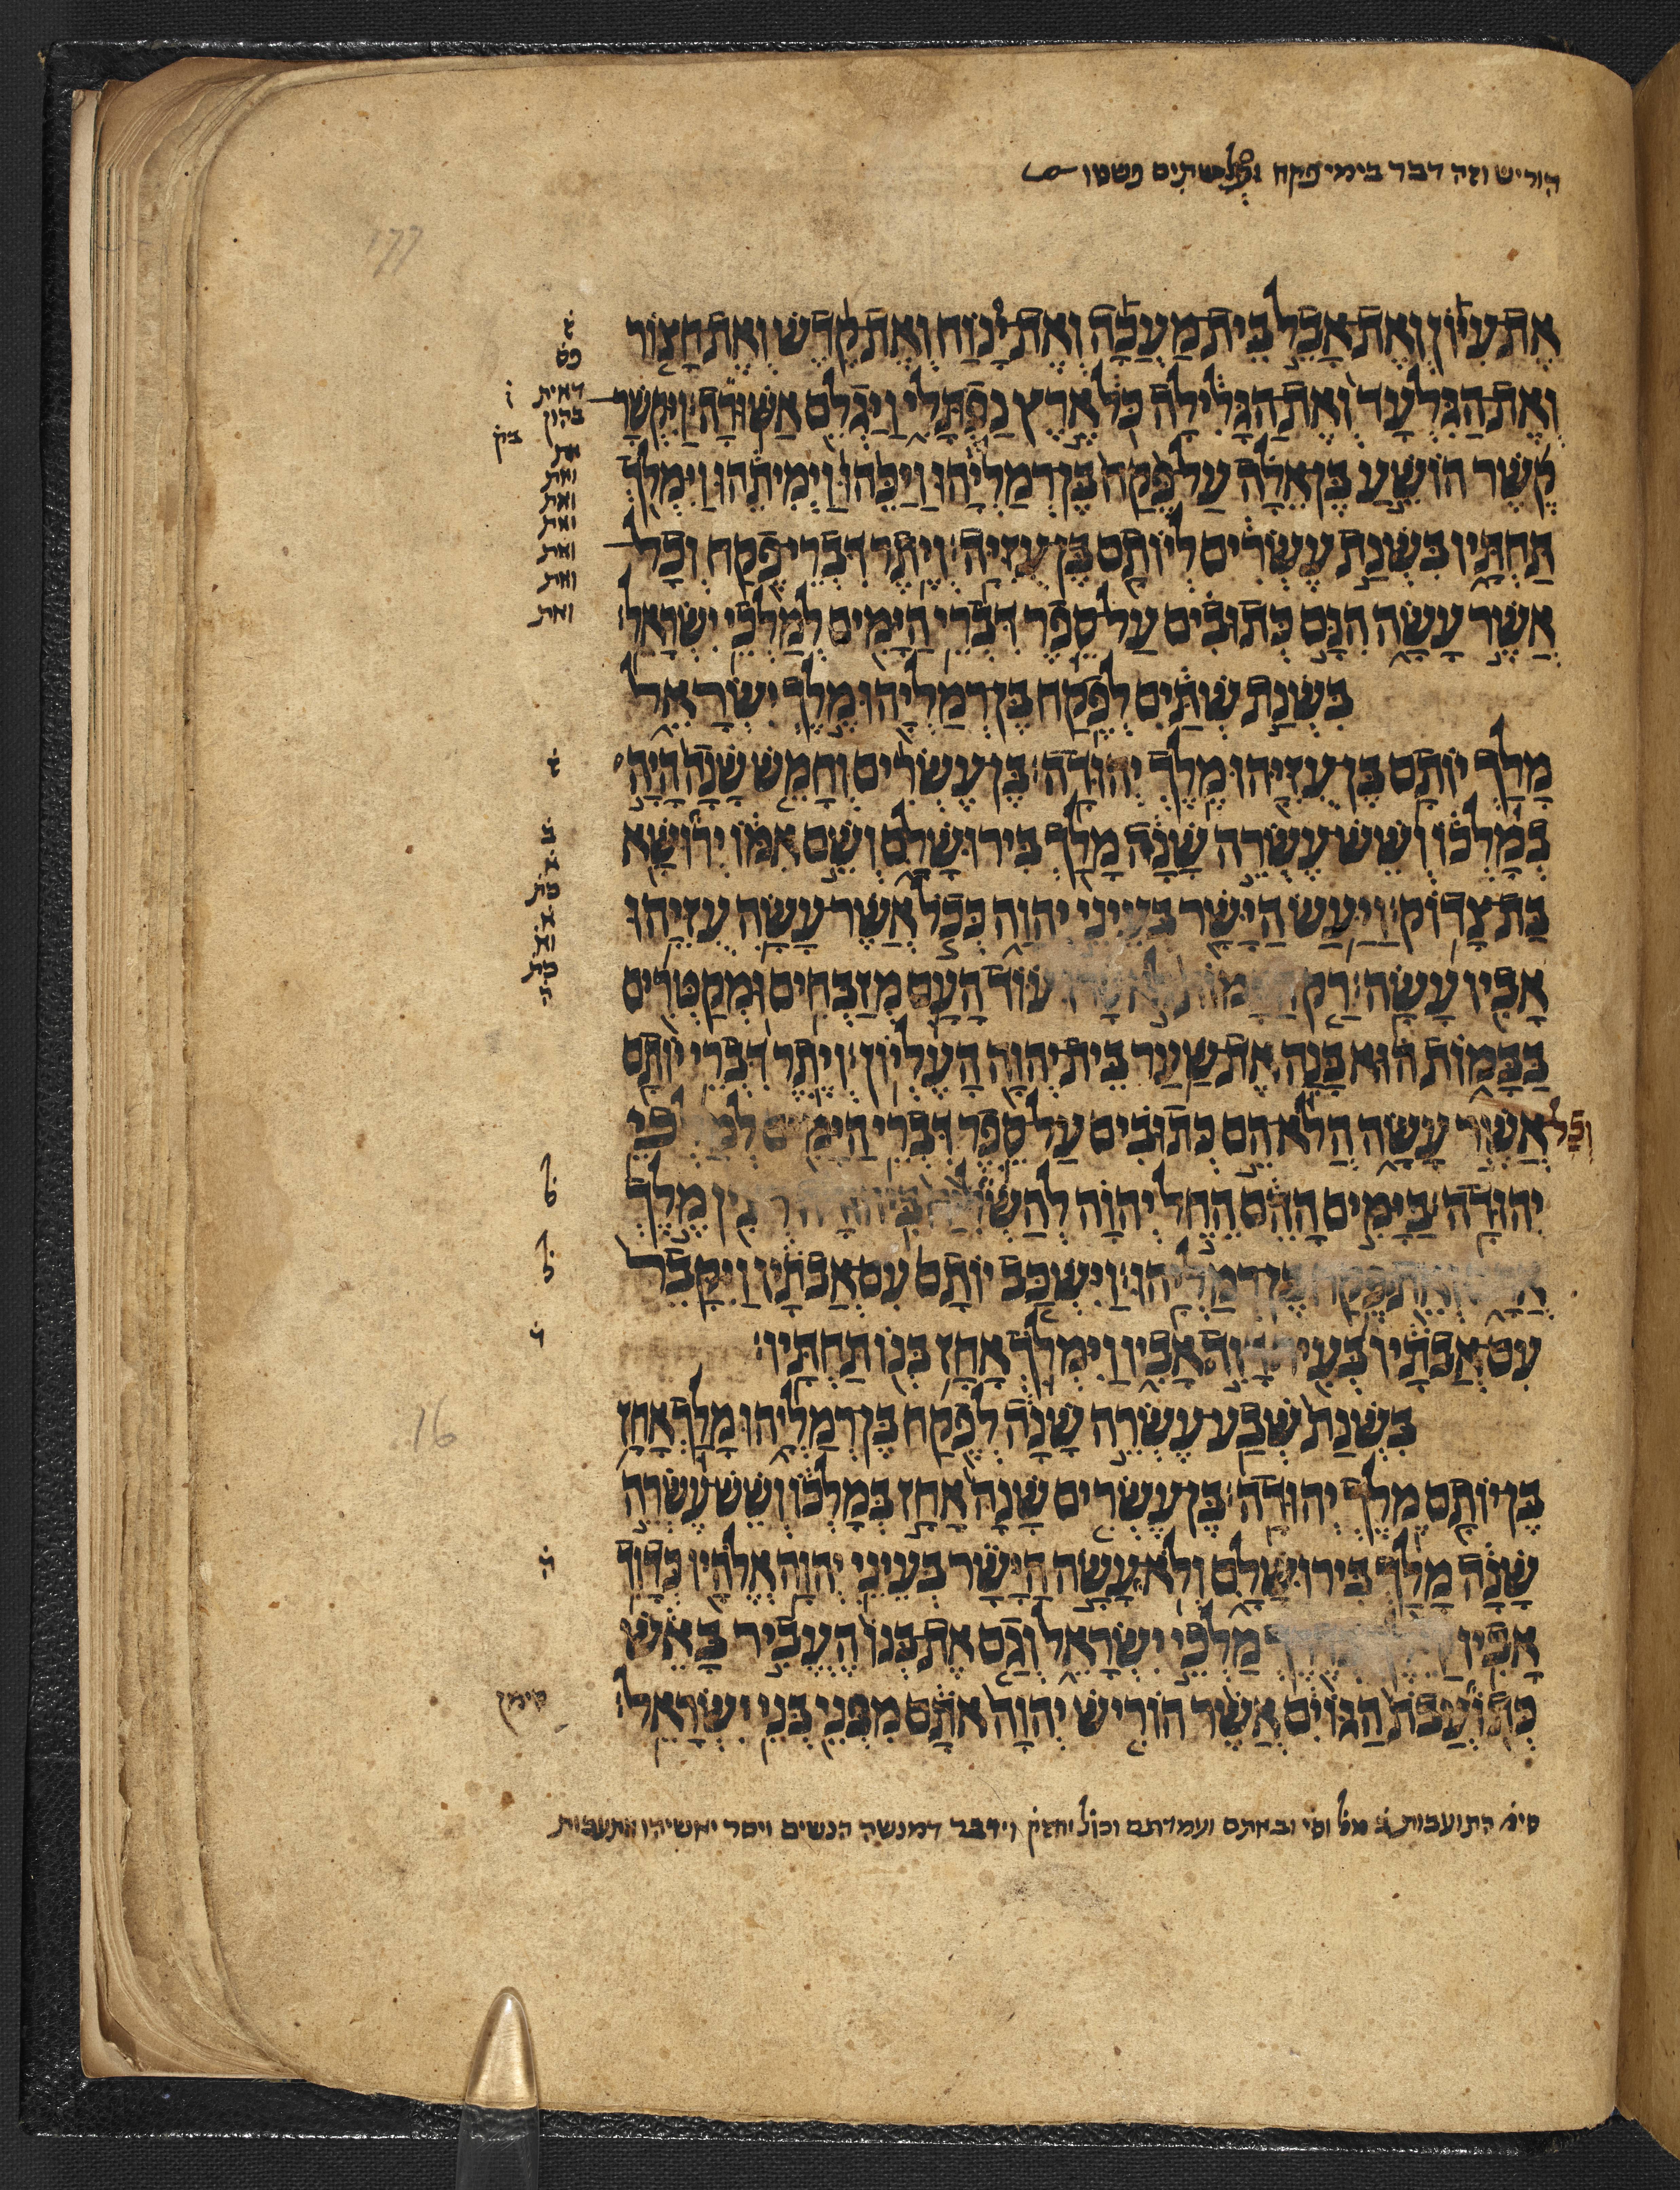 הוריש וזה דבר בימי פקח ופלשתים פשטו
177
אֶת עִיּוֹן וְאֶת אָבֵל בֵּית מַעֲכָה וְאֶת יָנוֹחַ וְאֶת קֶדֶשׁ וְאֶת חָצוֹר
וְאֶת הַגִּלְעָד וְאֶת הַגָּלִילָה כֹּל אֶרֶץ נַפְתָּלִי וַיַּגְלֵם אַשּׁוּרָה׃ וַיִּקְשָׁר
קֶשֶׁר הוֹשֵׁעַ בֶּן אֵלָה עַל פֶּקַח בֶּן רְמַלְיָהוּ וַיַּכֵּהוּ וַיְמִיתֵהוּ וַיִּמְלֹךְ
תַּחְתָּיו בִּשְׁנַת עֶשְׂרִים לְיוֹתָם בֶּן עֻזִּיָּה׃ וְיֶתֶר דִּבְרֵי פֶקַח וְכָל
אֲשֶׁר עָשָׂה הִנָּם כְּתוּבִים עַל סֵפֶר דִּבְרֵי הַיָּמִים לְמַלְכֵי יִשְׂרָאֵל׃
בִּשְׁנַת שְׁתַּיִם לְפֶקַח בֶּן רְמַלְיָהוּ מֶלֶךְ יִשְׂרָאֵל
מָלַךְ יוֹתָם בֶּן עֻזִּיָּהוּ מֶלֶךְ יְהוּדָה׃ בֶּן עֶשְׂרִים וְחָמֵשׁ שָׁנָה הָיָה
בְמָלְכוֹ וְשֵׁשׁ עֶשְׂרֵה שָׁנָה מָלַךְ בִּירוּשָׁלִָם וְשֵׁם אִמּוֹ יְרוּשָׁא
בַּת צָדוֹק׃ וַיַּעַשׂ הַיָּשָׁר בְּעֵינֵי יְהוָה כְּכֹל אֲשֶׁר עָשָׂה עֻזִּיָּהוּ
אָבִיו עָשָׂה׃ רַק עוֹד הָעָם מְזַבְּחִים וּמְקַטְּרִים
בַּבָּמוֹת הוּא בָּנָה אֶת שַׁעַר בֵּית יְהוָה הָעֶלְיוֹן׃ וְיֶתֶר דִּבְרֵי יוֹתָם
וכל אֲשֶׁר עָשָׂה הֲלֹא הֵם כְּתוּבִים עַל סֵפֶר דִּבְרֵי הַיָּמִים לְמַלְכֵי
יְהוּדָה׃ בַּיָּמִים הָהֵם הֵחֵל יְהוָה לְהַשְׁלִיחַ מֶלֶךְ
וְאֵת פֶּקַח בֶּן רְמַלְיָהוּ׃ וַיִּשְׁכַּב יוֹתָם עִם אֲבֹתָיו וַיִּקָּבֵר
עִם אֲבֹתָיו בְּעִיר דָּוִד אָבִיו וַיִּמְלֹךְ אָחָז בְּנוֹ תַּחְתָּיו׃
16
בִּשְׁנַת שְׁבַע עֶשְׂרֵה שָׁנָה לְפֶקַח בֶּן רְמַלְיָהוּ מָלַךְ אָחָז
בֶּן יוֹתָם מֶלֶךְ יְהוּדָה׃ בֶּן עֶשְׂרִים שָׁנָה אָחָז בְּמָלְכוֹ וְשֵׁשׁ עֶשְׂרֵה
שָׁנָה מָלַךְ בִּירוּשָׁלִָם וְלֹא עָשָׂה הַיָּשָׁר בְּעֵינֵי יְהוָה אֱלֹהָיו כְּדָוִד
אָבִיו מַלְכֵי יִשְׂרָאֵל וְגַם אֶת בְּנוֹ הֶעֱבִיר בָּאֵשׁ
כְּתֹעֲבֹת הַגּוֹיִם אֲשֶׁר הוֹרִישׁ יְהוָה אֹתָם מִפְּנֵי בְּנֵי יִשְׂרָאֵל׃
דאית
בהון
את
ואת
ואת
ואת
ואת
ואת
ואת
סימן
התועבות ובאתם ועמדתם וידבר דמנשה הנשים ויסר יאשיהו